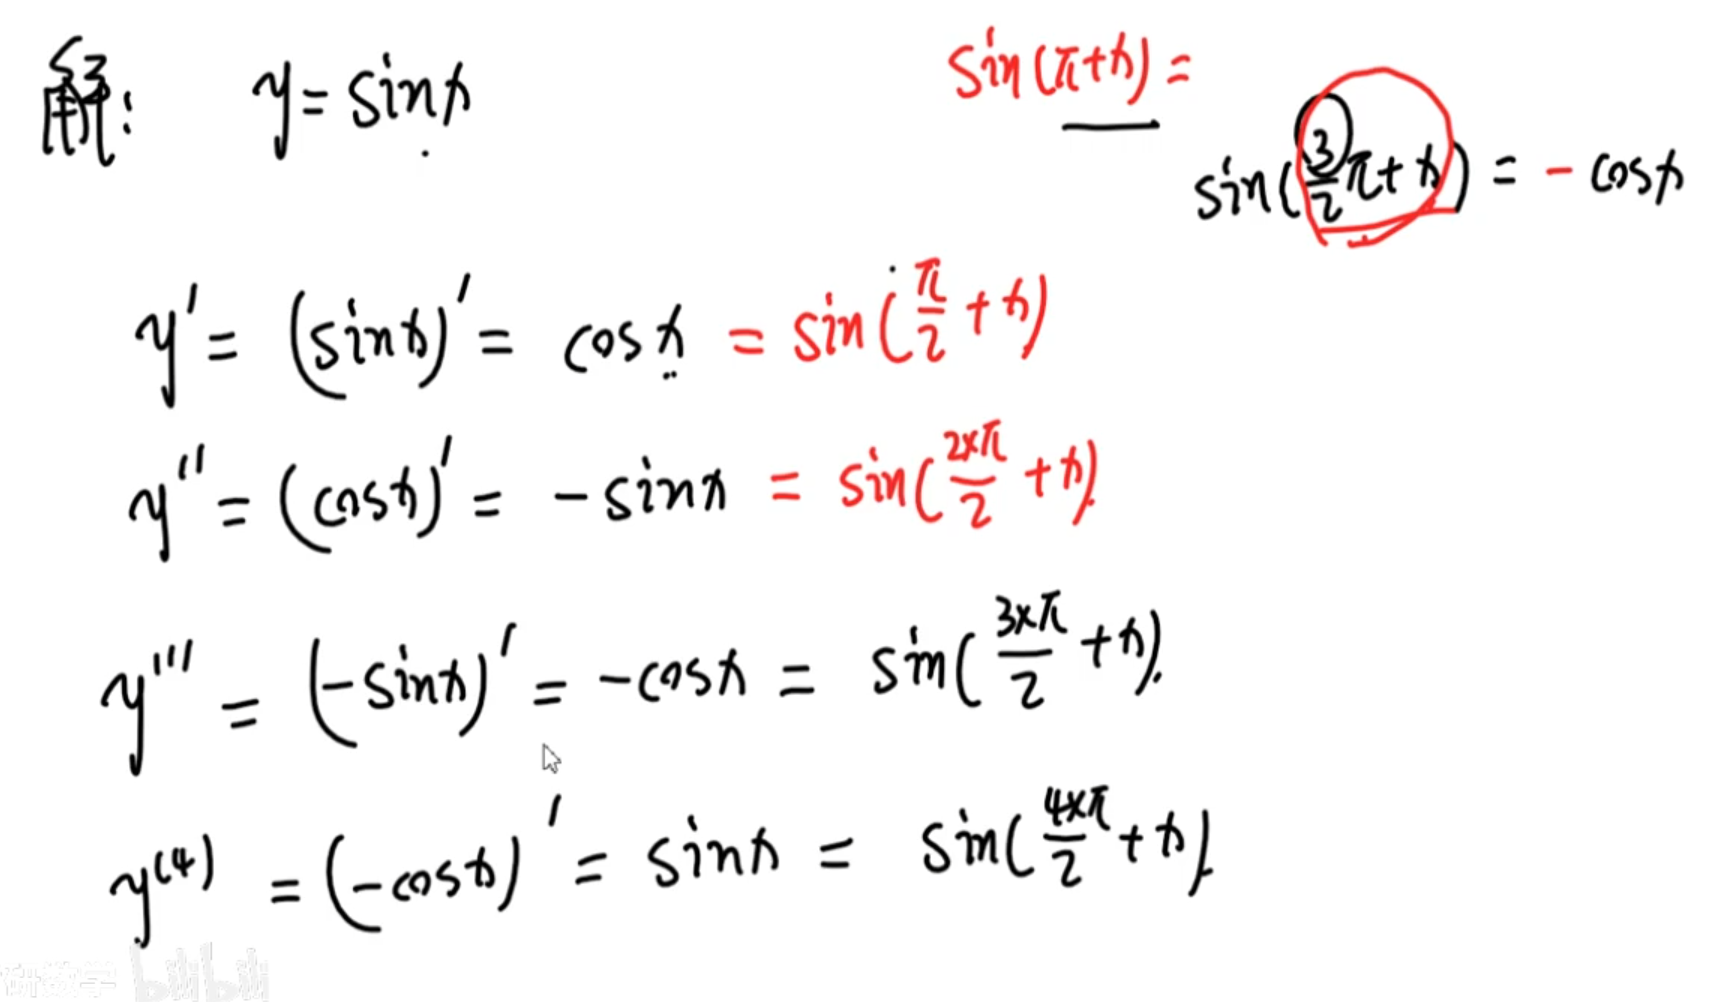 解: y = sinx
sin(π+x) =
sin(3/2 π + x) = - cosx
y' = (sinx)' = cosx = sin(π/2 + x)
y'' = (cosx)' = - sinx = sin(2×π/2 + x)
y''' = (-sinx)' = -cosx = sin(3×π/2 + x)
y⁽⁴⁾ = (-cosx)' = sinx = sin(4×π/2 + x)
研数学 bilibili